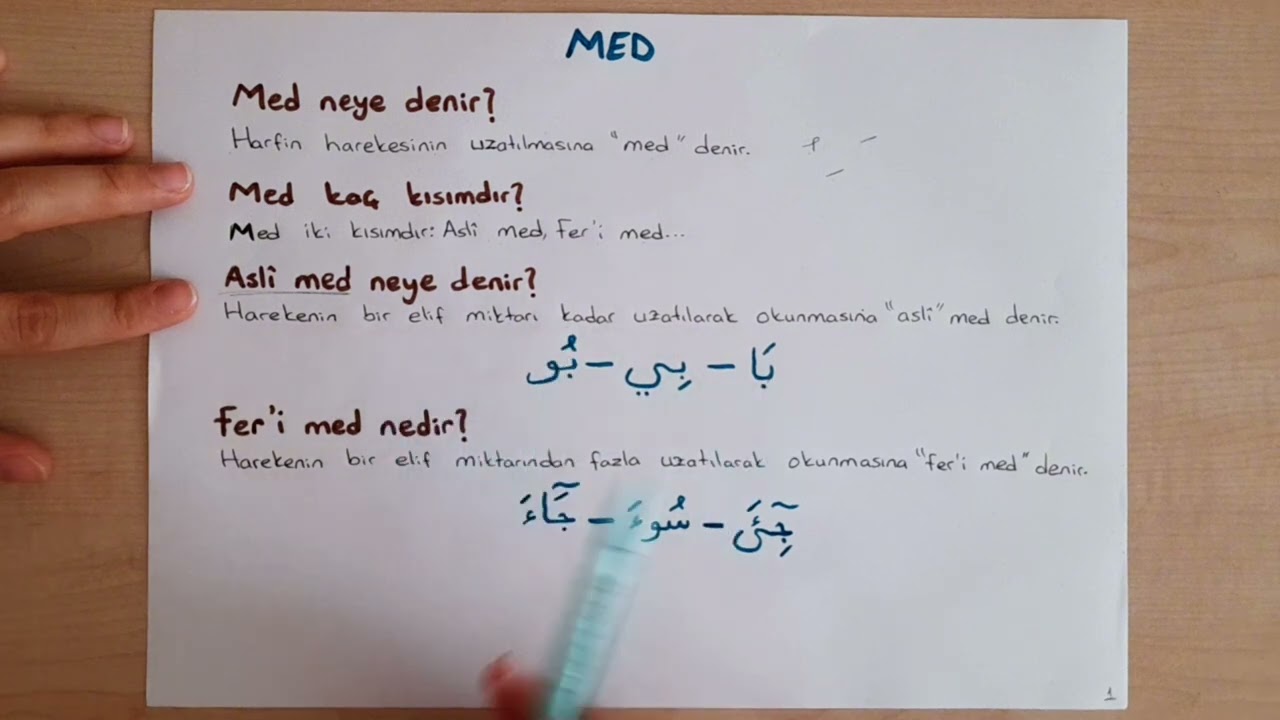 MED
Med neye denir?
Harfin harekesinin uzatılmasına "med" denir.
Med kaç kısımdır?
Med iki kısımdır: Aslî med, Fer'i med...
Aslî med neye denir?
Harekenin bir elif miktarı kadar uzatılarak okunmasına "aslî" med denir.
بَا - بِي - بُو
Fer'i med nedir?
Harekenin bir elif miktarından fazla uzatılarak okunmasına "fer'i med" denir.
جِٓئَ - سُوءَ - جَٓاءَ
1